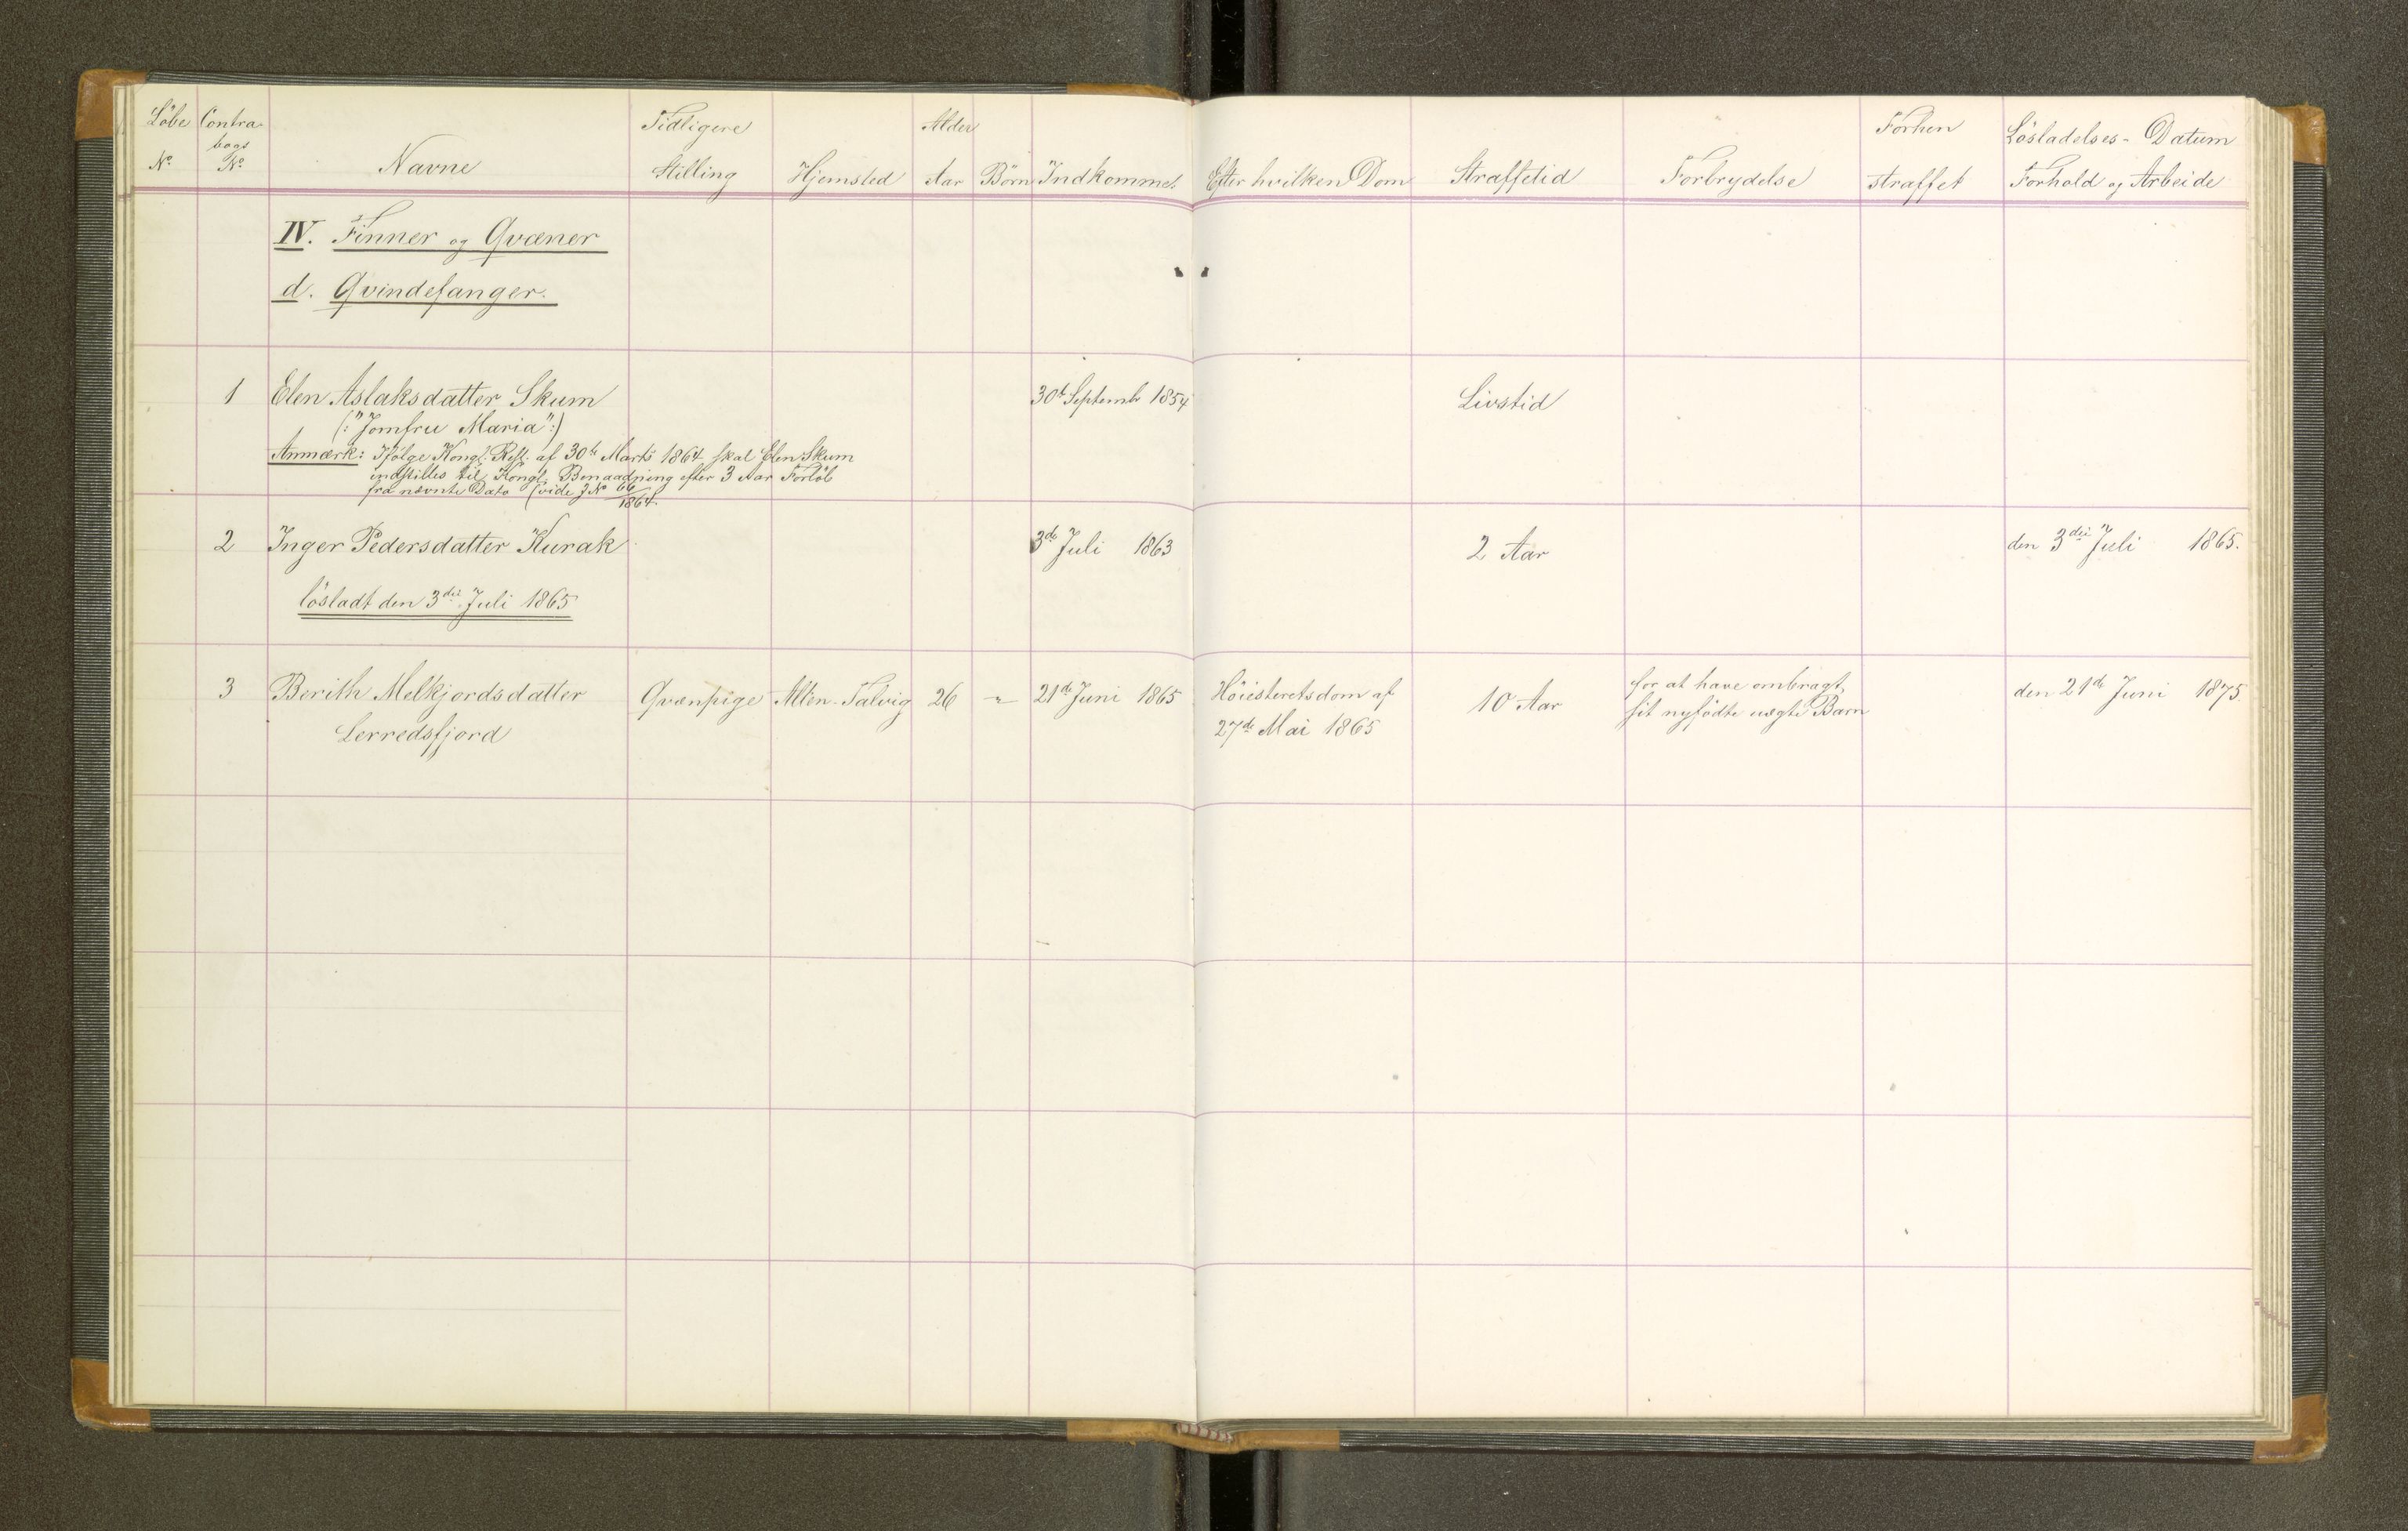 Löbe Contra- Tidligere Alder Forhen Lösladelses- Datum
bogs
No. No. Navne Stilling Hjemsted Aar Börn Indkommet Efter hvilken Dom Straffetid Forbrydelse straffet Forhold og Arbeide
IV. Finner og Qvæner
d. Qvindefanger.
1 Elen Aslaksdatter Skum 30te Septembr 1854 Livstid
(:"Jomfru Maria":)
Anmærk: Ifölge Kongl. Resl. af 30te Marts 1864 skal Elen Skum
indstilles til Kongl. Benaadning efter 3 Aar Forlöb
fra nævnte Dato (vide J No 66/1864.
2 Inger Pedersdatter Kurak 3de Juli 1863 2 Aar den 3die Juli 1865.
lösladt den 3die Juli 1865
3 Berith Melkjordsdatter Qvænpige Alten-Talvig 26 " 21de Juni 1865 Höiesteretsdom af 10 Aar for at have ombragt den 21de Juni 1875.
Lerredsfjord 27de Mai 1865 sit nyfödte uægte Barn